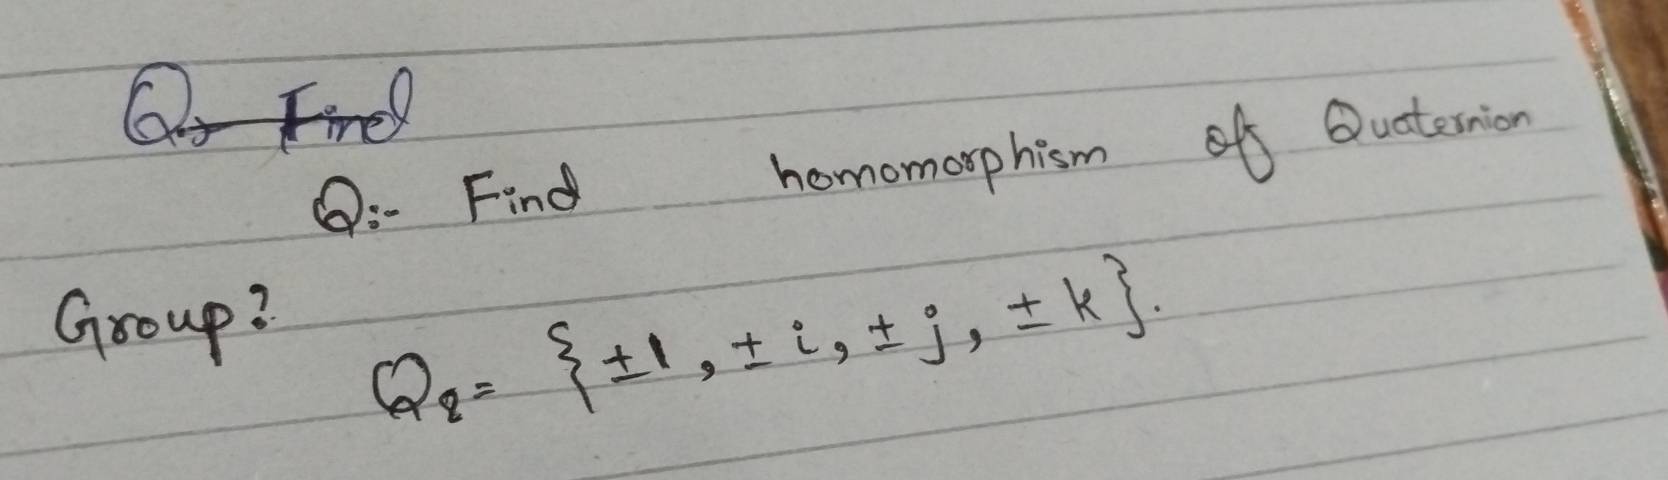 Q:- Find
Q:- Find homomorphism of Quaternion
Group?
Q₈ = {±1, ±i, ±j, ±k}.